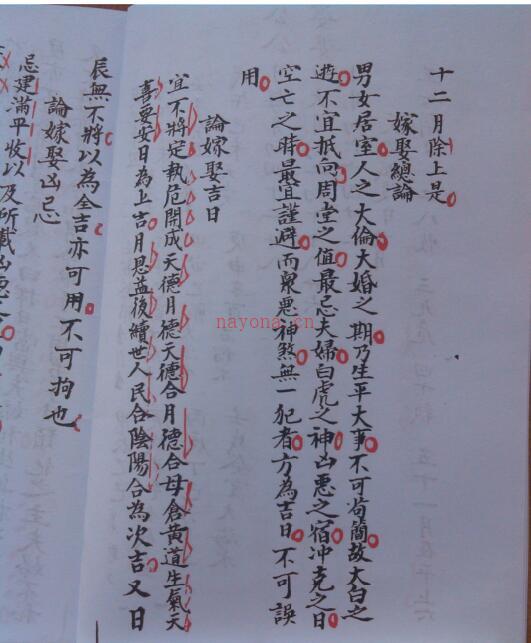 十二月除上是
嫁娶總論
男女居室人之大倫大婚之期乃生平大事不可苟簡故太白之
遊不宜抵向周堂之值最忌夫婦白虎之神凶惡之宿冲克之日
空亡之時最宜謹避而衆惡神煞無一犯者方為吉日不可誤
用
論嫁娶吉日
宜不將定執危開成天德月德天德合月德合母倉黃道生氣天
喜要安日為上吉月恩益後續世人民合陰陽合為次吉又日
辰無不將以為全吉亦可用不可拘也
論嫁娶凶忌
忌建滿平收以及所載凶惡
nayona.cn